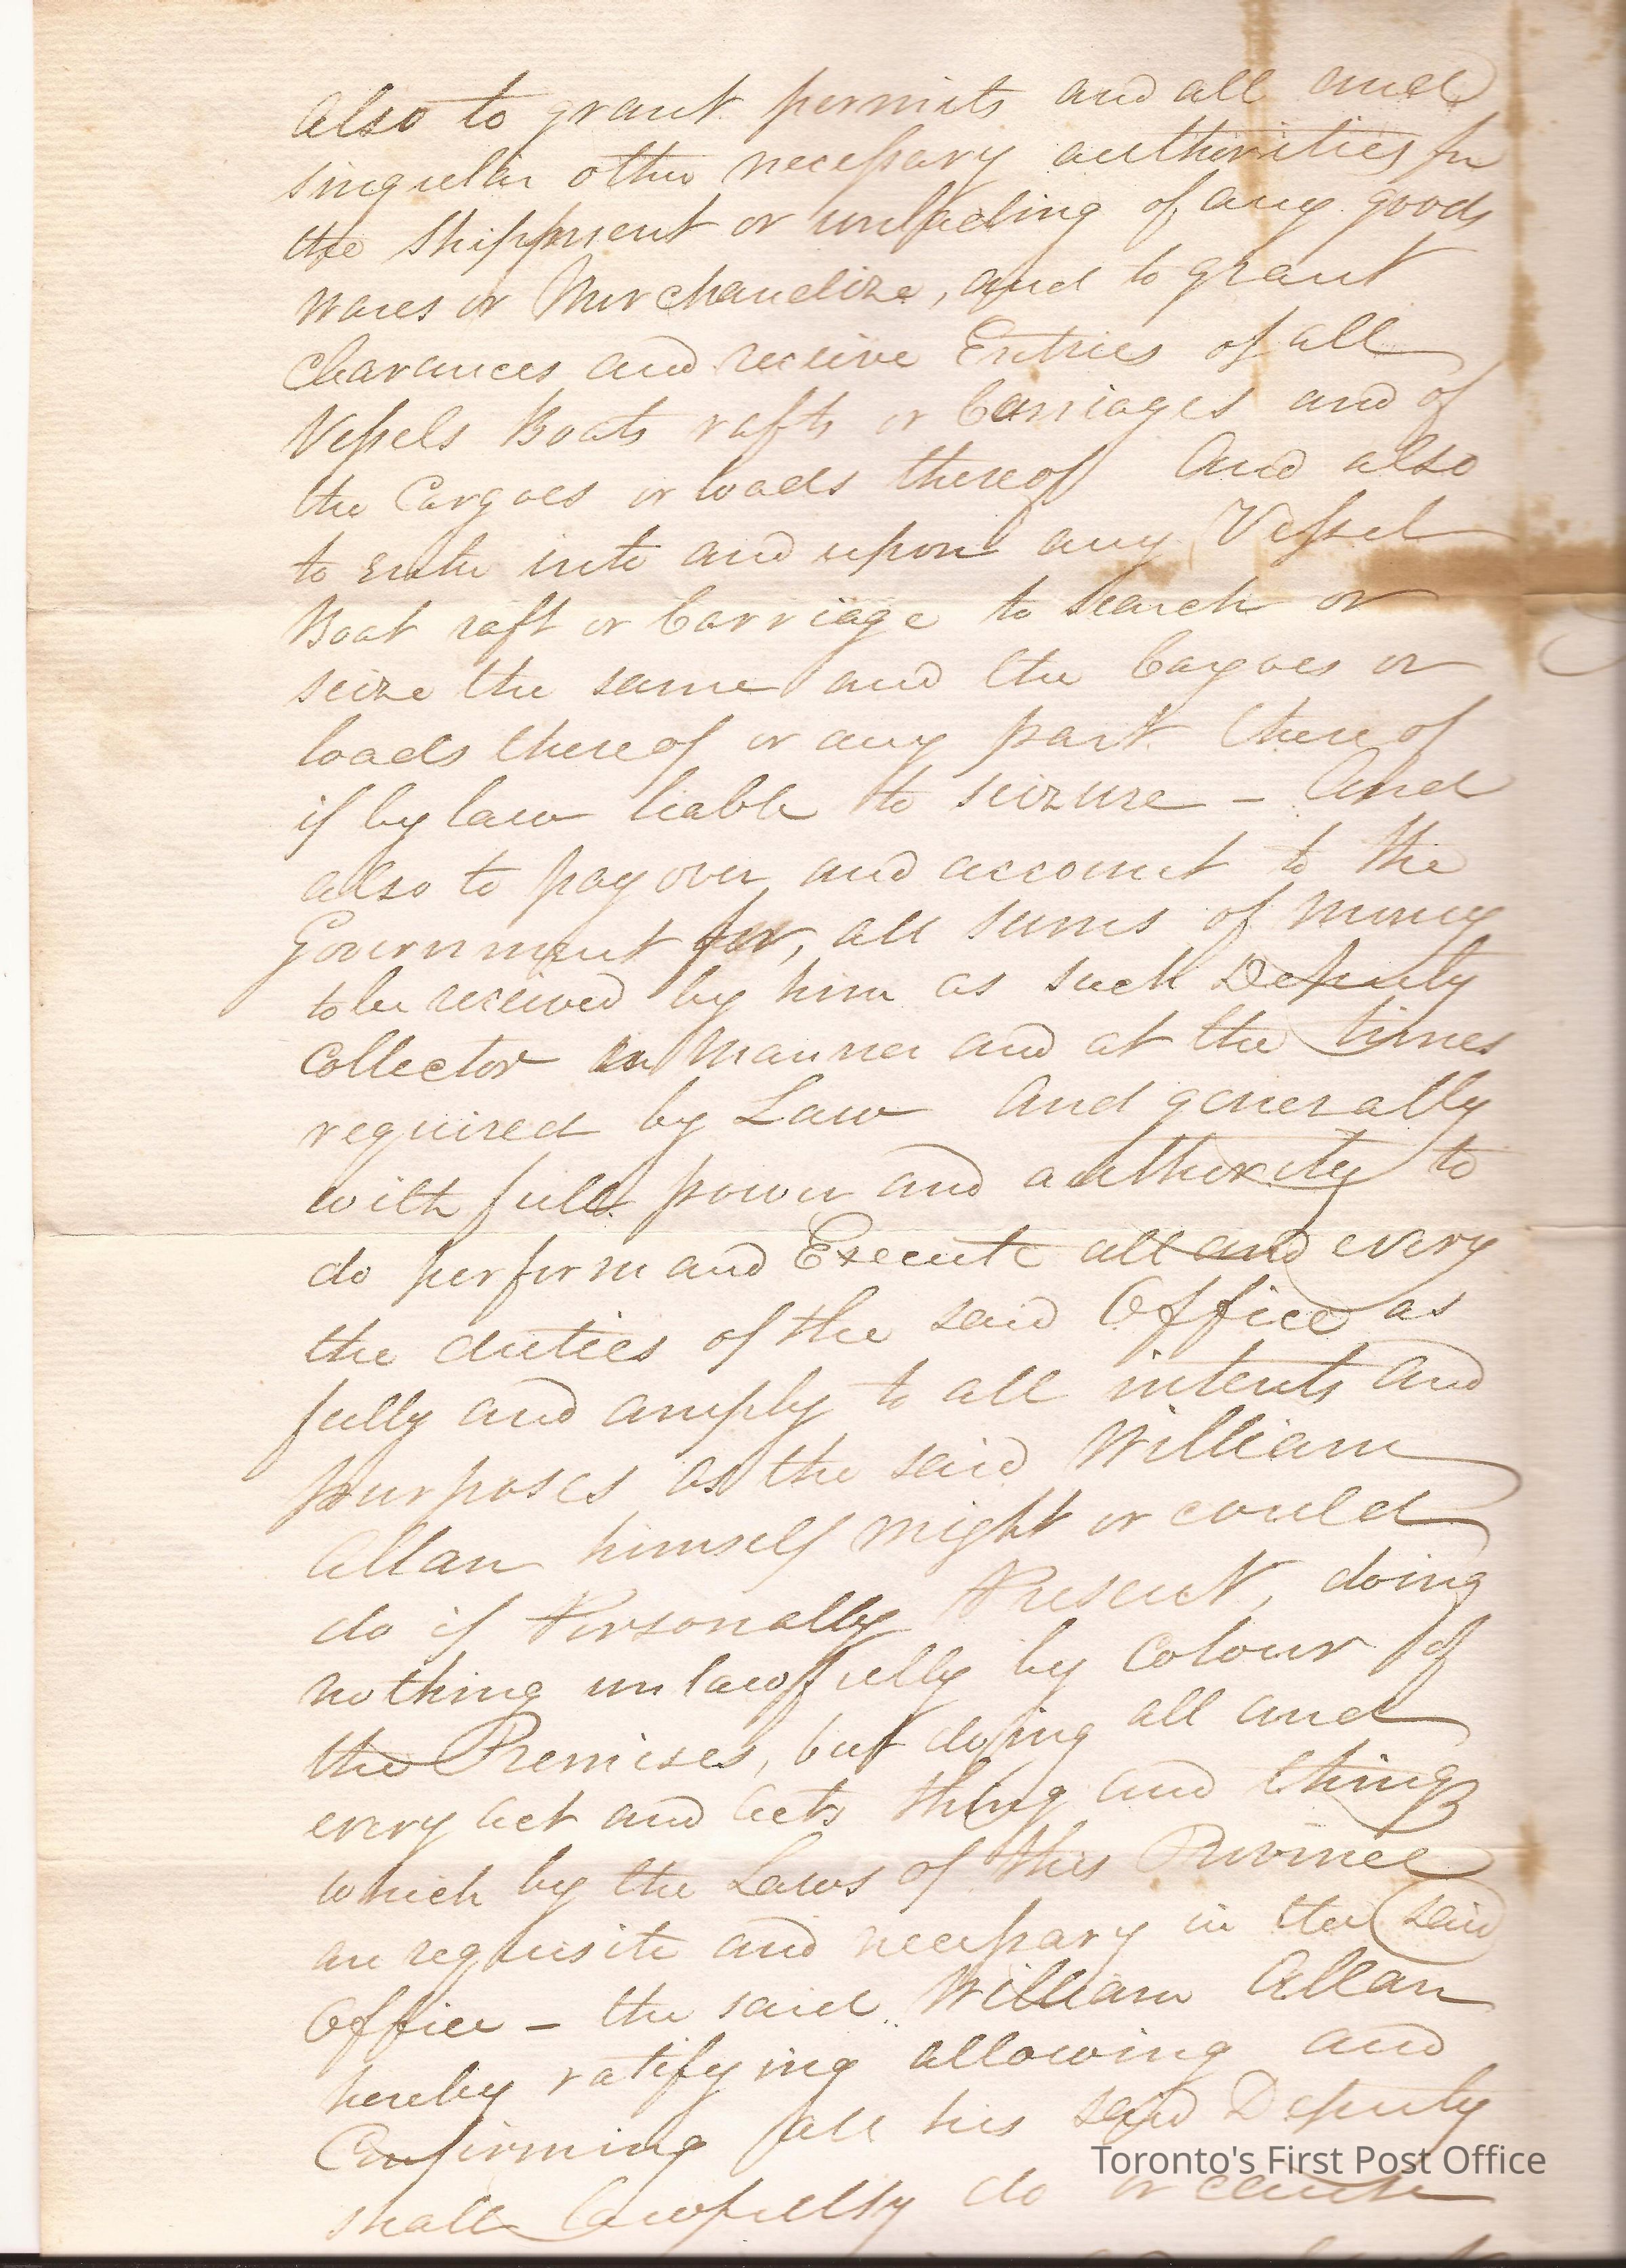 also to grant permits and all and
singular other necessary authorities for
the Shippment or unlading of any goods
wares or Merchandize, and to grant
Clearances and receive Entries of all
Vessels Boats rafts or Carriages and of
the Cargoes or loads thereof And also
to enter into and upon any Vessel
Boat raft or Carriage to search or
seize the same and the Cargoes or
loads thereof or any part thereof
if by law liable to seizure – And
also to pay over and account to the
Government for, all sums of money
to be received by him as such Deputy
Collector in Manner and at the times
required by Law And generally
with full power and authority to
do perform and Execute all and every
the duties of the said Office as
fully and amply to all intents and
purposes as the said William
Allan himself might or could
do if Personally Present, doing
nothing unlawfully by Colour of
the Premises, but doing all and
every act and Acts thing and things
which by the Laws of this Province
are requisite and necessary in the said
Office – the said William Allan
hereby ratifying allowing and
Confirming all his said Deputy
Toronto's First Post Office
shall lawfully do or cause